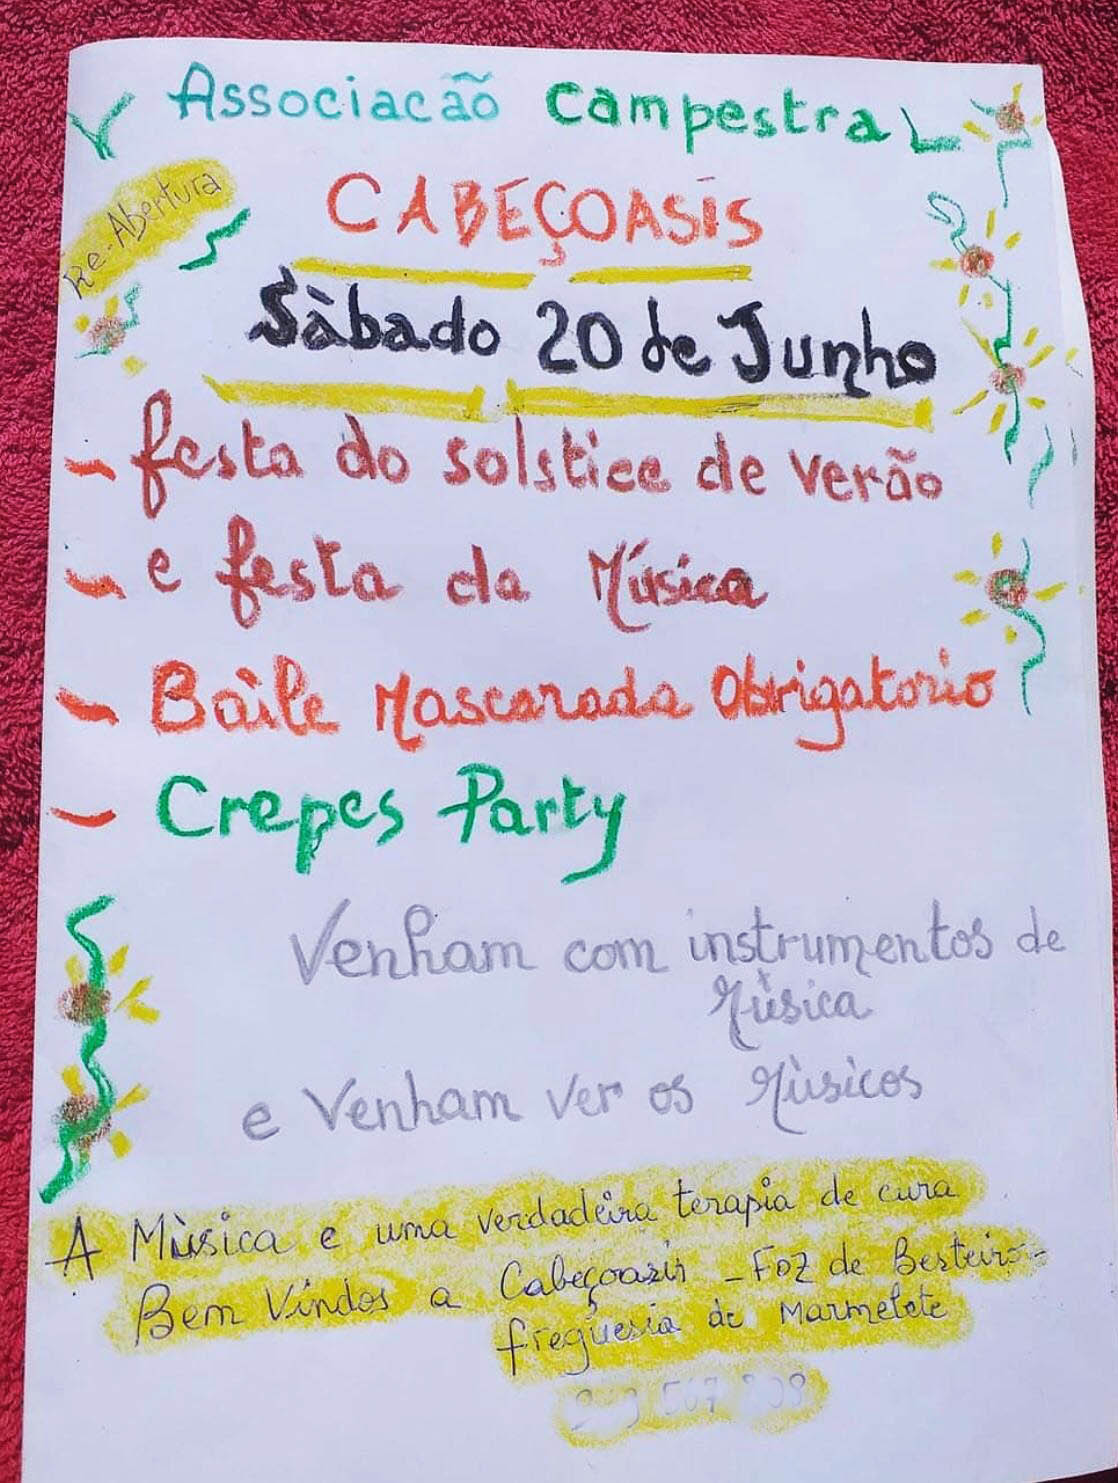 Associacão campestra
Re-Abertura
CABEÇOASIS
Sàbado 20 de Junho
- festa do solstice de verão
- e festa da Música
- Baile Mascarada Obrigatorio
- Crepes Party
Venham com instrumentos de
Mùsica
e Venham ver os Mùsicos
A Mùsica e uma verdadeira terapia de cura
Bem Vindos a Cabeçoasis - Foz de Besteiro -
freguesia de Marmelete
567